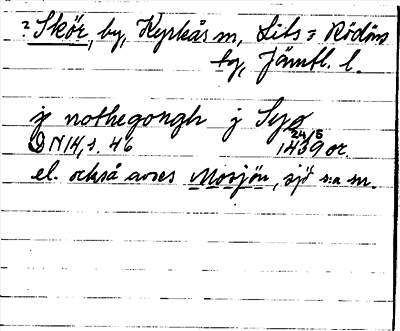 ? Skör, by, Kyrkås sn, Lits o Rödöns
tg, Jämtl. l.
j nothegongh j Syo
DN 14, s. 46 24/5 1439 or.
el. också avses Mosjön, sjö s:a sn.